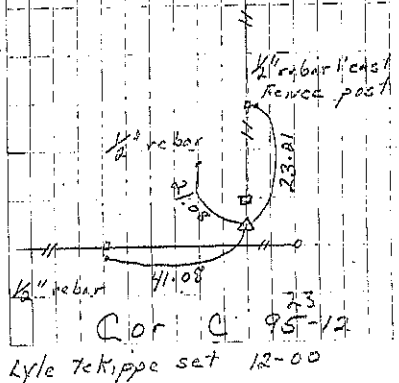 1/2" rebar 1' east
Fence post
1/2" rebar
23.01
21.08
1/2" rebar
41.08
Cor C 23
95-12
Lyle Tekippe set 12-00